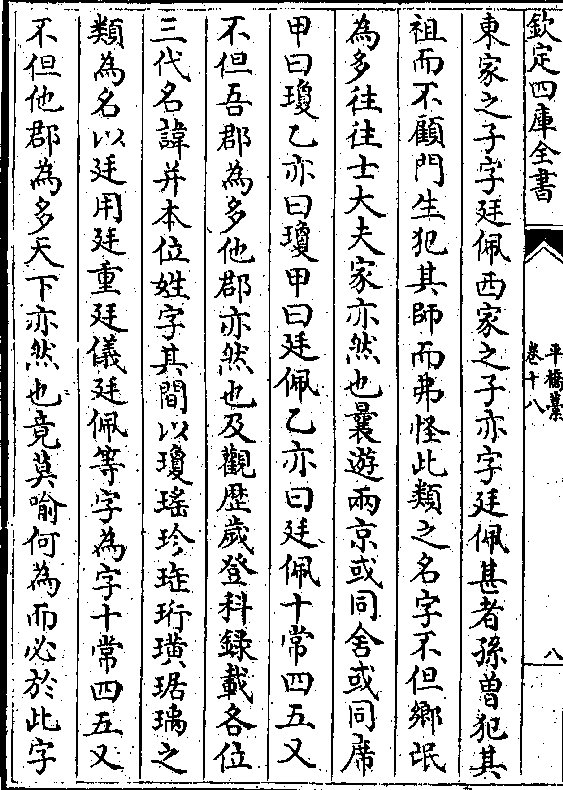 欽定四庫全書
平橋藁
卷十八
八
東家之子字廷佩西家之子亦字廷佩甚者孫曾犯其
祖而不顧門生犯其師而弗怪此類之名字不但鄉氓
為多往往士大夫家亦然也曩遊兩京或同舍或同席
甲曰瓊乙亦曰瓊甲曰廷佩乙亦曰廷佩十常四五又
不但吾郡為多他郡亦然也及觀歴歲登科録載各位
三代名諱并本位姓字其間以瓊瑤珍琟珩璜琚瑀之
類為名以廷用廷重廷儀廷佩等字為字十常四五又
不但他郡為多天下亦然也竟莫喻何為而必於此字